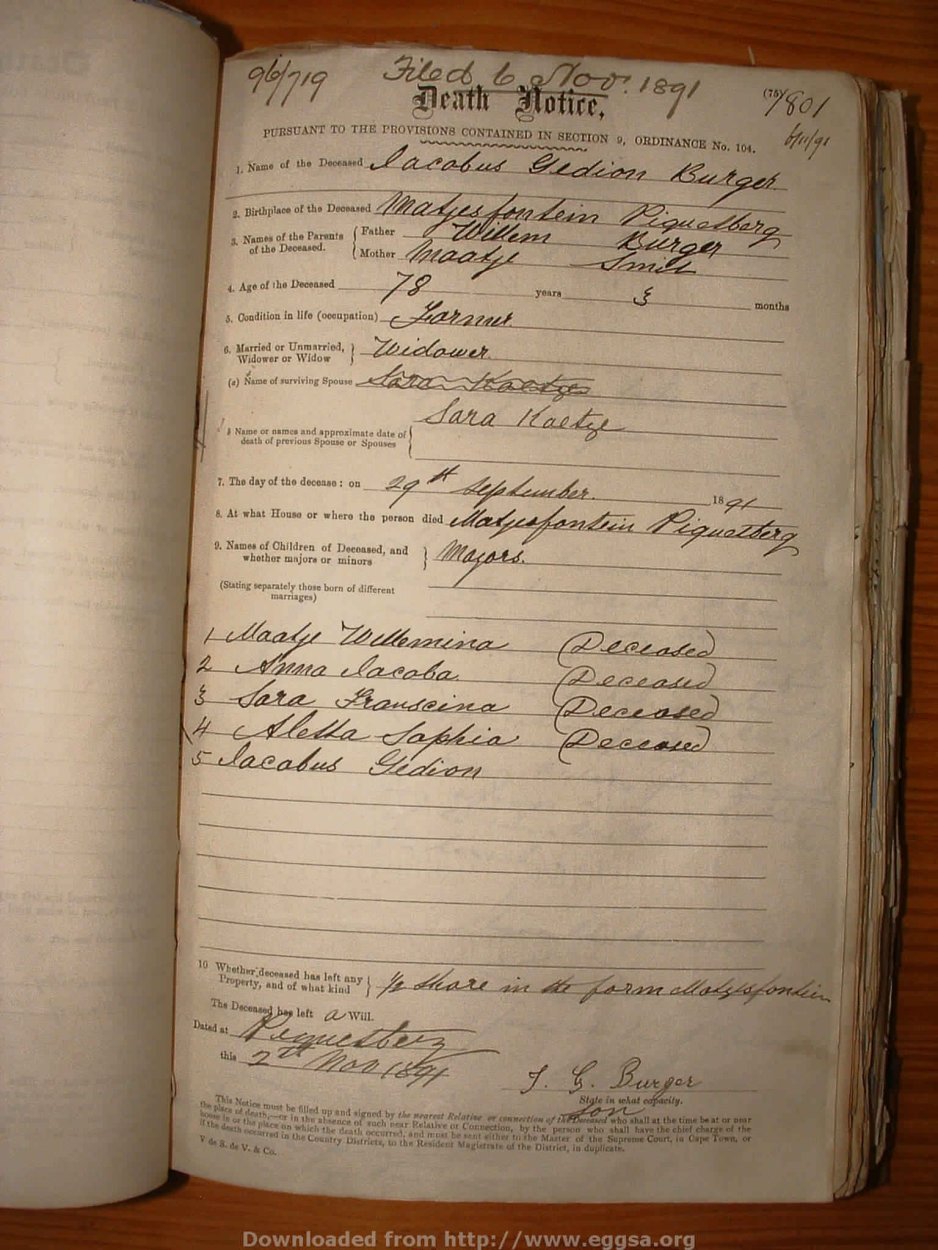 96/719 Filed 6 Nov. 1891
Death Notice, (75) 7/801
PURSUANT TO THE PROVISIONS CONTAINED IN SECTION 9, ORDINANCE No. 104. 6/11/91
1. Name of the Deceased Jacobus Gedion Burger
2. Birthplace of the Deceased Matjesfontein Piquetberg
3. Names of the Parents of the Deceased. { Father Willem Burger
Mother Maatje Smit
4. Age of the Deceased 78 years 3 months
5. Condition in life (occupation) Farmer
6. Married or Unmarried, Widower or Widow } Widower
(a) Name of surviving Spouse Sara Koetje
Sara Koetje
Name or names and approximate date of
death of previous Spouse or Spouses
7. The day of the decease: on 29th September. 1891
8. At what House or where the person died Matjesfontein Piquetberg
9. Names of Children of Deceased, and whether majors or minors } Majors.
(Stating separately those born of different
marriages)
1 Maatje Willemina (Deceased)
2 Anna Jacoba (Deceased)
3 Sara Franscina (Deceased)
4 Aletta Sophia (Deceased)
5 Jacobus Gedion
10 Whether deceased has left any Property, and of what kind } 1/2 share in the farm Matjesfontein
The Deceased has left a Will.
Dated at Piquetberg
this 2nd Nov 1891
J. G. Burger
State in what capacity.
Son
This Notice must be filled up and signed by the nearest Relative or connection of the Deceased who shall at the time be at or near
the place of death,—or in the absence of such near Relative or Connection, by the person who shall have the chief charge of the
house in or the place on which the death occurred, and must be sent either to the Master of the Supreme Court, in Cape Town, or
if the death occurred in the Country Districts, to the Resident Magistrate of the District, in duplicate.
V de S. de V. & Co.
Downloaded from http://www.eggsa.org